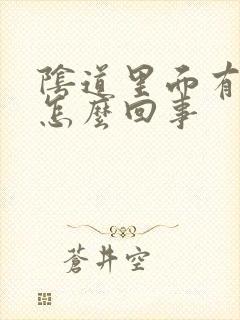 陰道里而有
怎麼回事
蒼井空